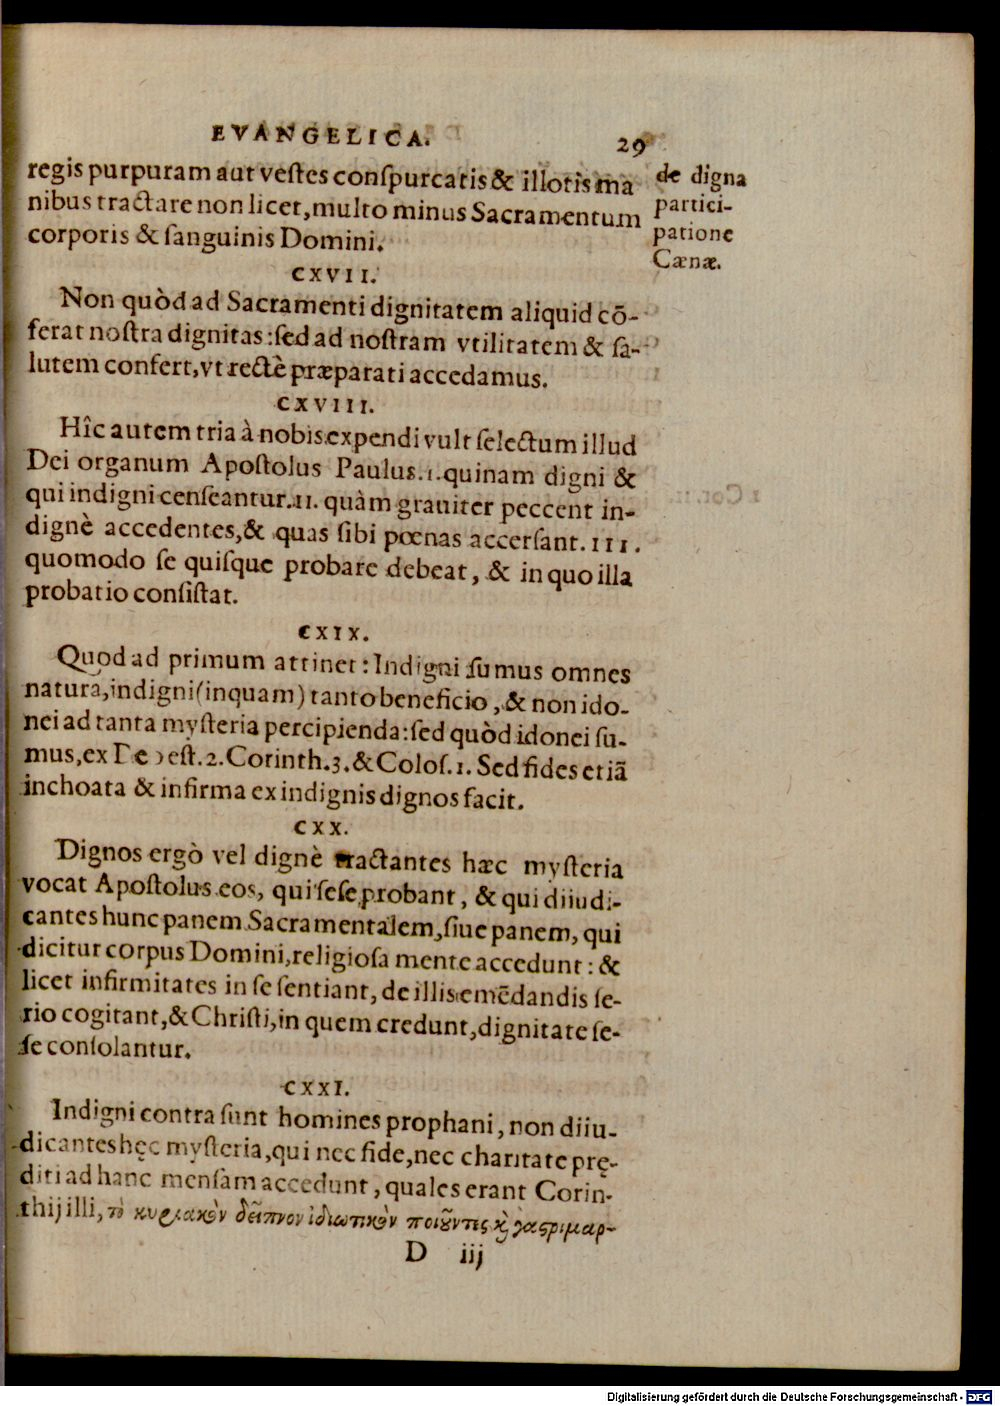 EVANGELICA. 29
regis purpuram aut veſtes conſpurcatis & illotis ma
nibus tractare non licet, multo minus Sacramentum
corporis & ſanguinis Domini.
de digna
partici-
patione
Cænæ.
CXVII.
Non quòd ad Sacramenti dignitatem aliquid cō-
ferat noſtra dignitas: ſed ad noſtram vtilitatem & ſa-
lutem confert, vt rectè præparati accedamus.
CXVIII.
Hîc autem tria à nobis expendi vult ſelectum illud
Dei organum Apoſtolus Paulus. I. quinam digni &
qui indigni cenſeantur. II. quàm grauiter peccent in-
dignè accedentes, & quas ſibi pœnas accerſant. III.
quomodo ſe quiſque probare debeat, & in quo illa
probatio conſiſtat.
CXIX.
Quod ad primum attinet: Indigni ſumus omnes
natura, indigni (inquam) tanto beneficio, & non ido-
nei ad tanta myſteria percipienda: ſed quòd idonei ſu-
mus, ex Deo eſt. 2. Corinth. 3. & Coloſ. 1. Sed fides etiā
inchoata & infirma ex indignis dignos facit.
CXX.
Dignos ergò vel dignè tractantes hæc myſteria
vocat Apoſtolus eos, qui ſeſe probant, & qui diiudi-
cantes hunc panem Sacramentalem, ſiue panem, qui
dicitur corpus Domini, religioſa mente accedunt: &
licet infirmitates in ſe ſentiant, de illis emēdandis ſe-
rio cogitant, & Chriſti, in quem credunt, dignitate ſe-
ſe conſolantur.
CXXI.
Indigni contra ſunt homines prophani, non diiu-
dicantes hęc myſteria, qui nec fide, nec charitate prę-
diti ad hanc menſam accedunt, quales erant Corin-
thij illi, τὸ κυριακὸν δεῖπνον ἰδιωτικὸν ποιοῦντες ϗ γαςριμαρ-
D iij
Digitalisierung gefördert durch die Deutsche Forschungsgemeinschaft - DFG